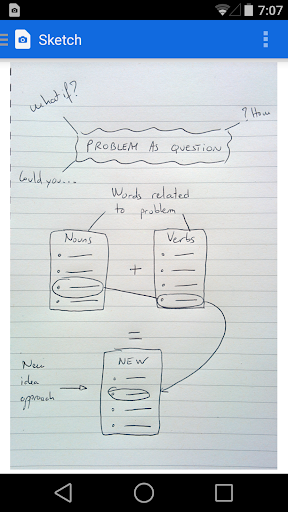 7:07
Sketch
what if?
? How
PROBLEM AS QUESTION
Could you...
Words related
to problem
Nouns
Verbs
+
=
NEW
New
idea
approach